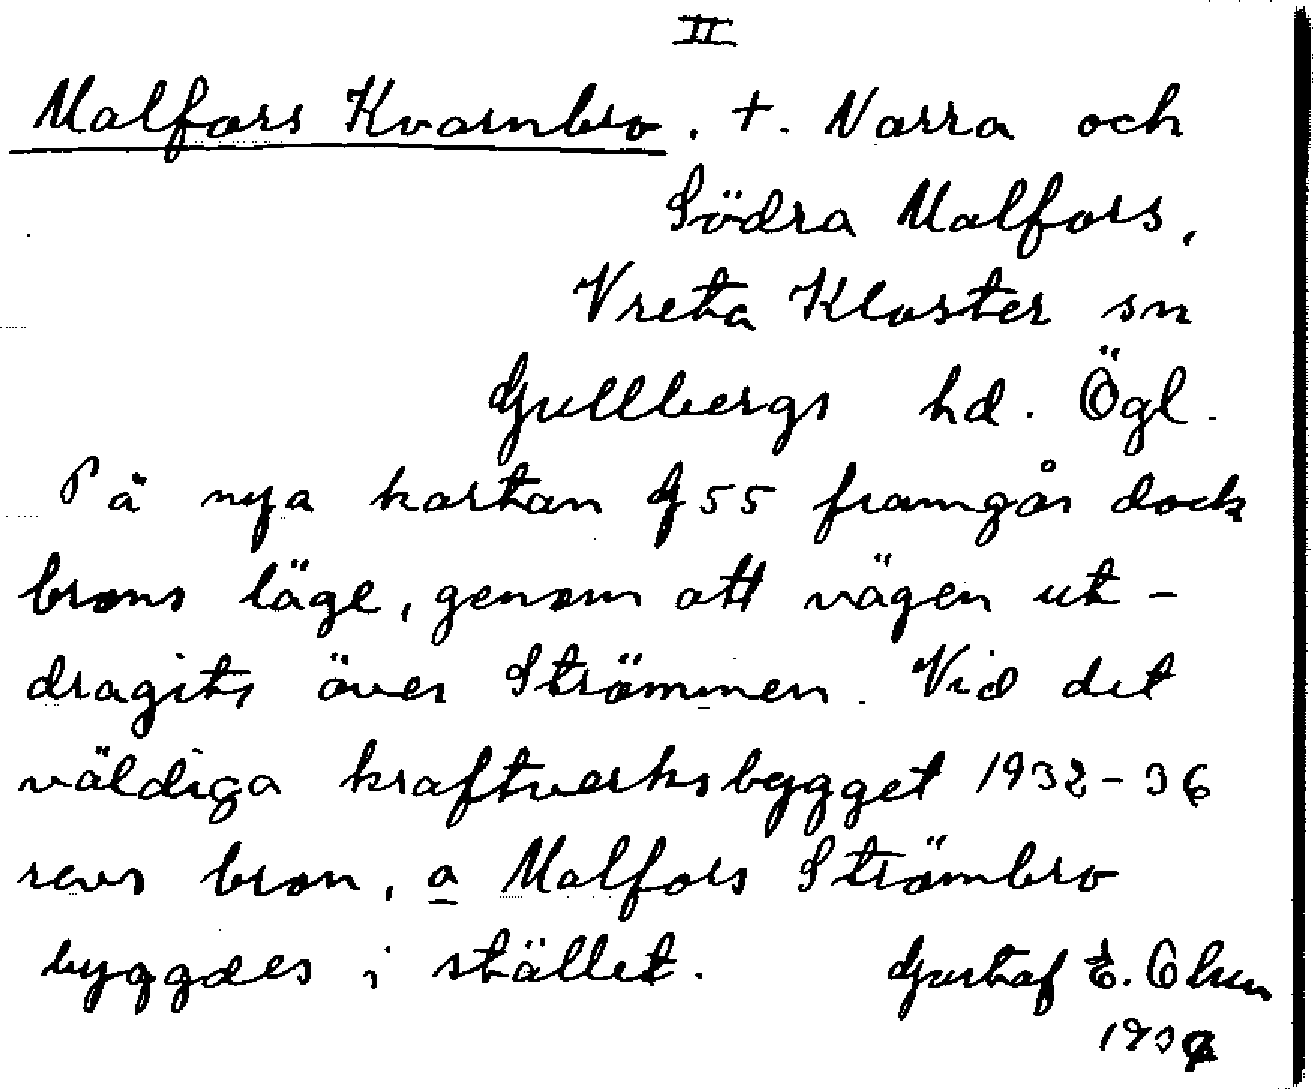 II
Malfors Kvarnbro. +. Norra och
Södra Malfors,
Vreta Kloster sn
Gullbergs hd. Ögl.
På nya kartan G 55 framgår dock
brons läge, genom att vägen ut-
dragits över Strömmen. Vid det
väldiga kraftverksbygget 1932-36
revs bron, o Malfors Strömbro
byggdes i stället. Gustaf E. Olson